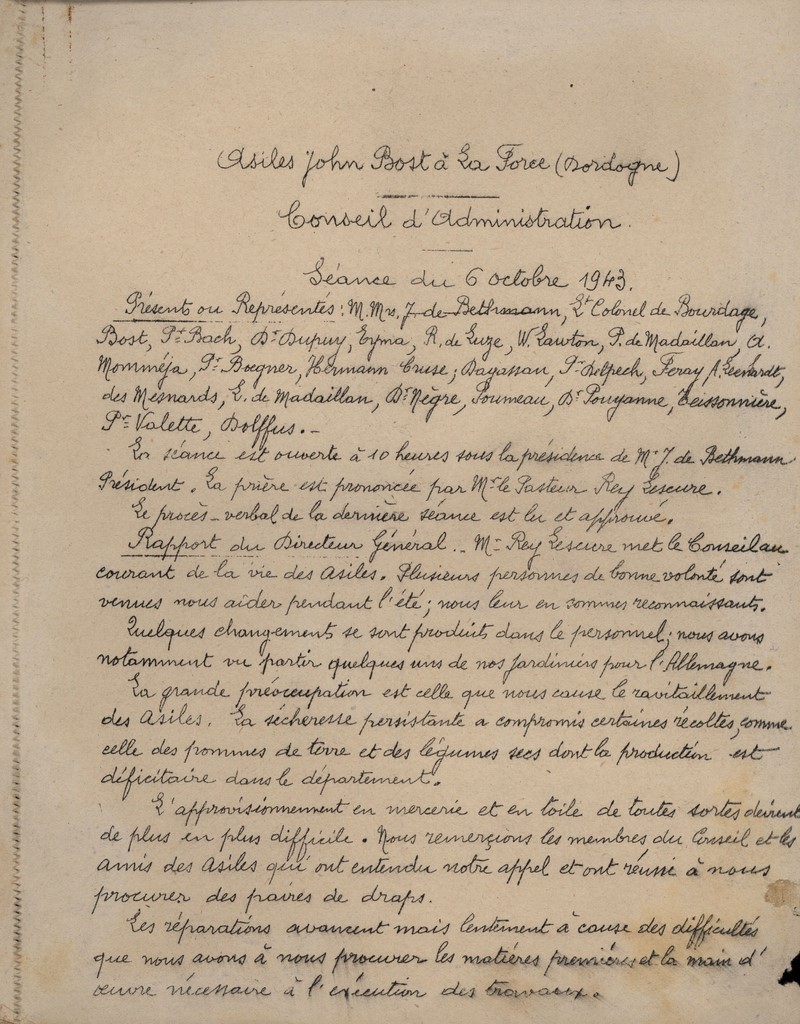 Asiles John Bost à La Force (Dordogne)
Conseil d'Administration.
Séance du 6 octobre 1943.
Présent ou Représentés : M.Mrs. J. de Bethmann, Lt Colonel de Bourdage,
Bost, Pr Bach, Dr Dupuy, Eyma, R. de Luze, W. Lawton, P. de Madaillan, A.
Momméja, Pr Boegner, Hermann Cruse, Dayassau, Pr Delpech, Feray, A. Leenhardt,
des Mesnards, L. de Madaillan, Dr Nègre, Poumeau, Dr Pouyanne, Teissonnière,
Pr Valette, Dolffus. -
La séance est ouverte à 10 heures sous la présidence de Mr J. de Bethmann
Président. La prière est prononcée par Mr le Pasteur Rey Lescure.
Le procès-verbal de la dernière séance est lu et approuvé.
Rapport du Directeur Général. - Mr Rey Lescure met le Conseil au
courant de la vie des Asiles. Plusieurs personnes de bonne volonté sont
venues nous aider pendant l'été ; nous leur en sommes reconnaissants.
Quelques changements se sont produits dans le personnel ; nous avons
notamment vu partir quelques uns de nos jardiniers pour l'Allemagne.
La grande préocupation est celle que nous cause le ravitaillement
des Asiles. La sécheresse persistante a compromis certaines récoltes, comme
celle des pommes de terre et des légumes secs dont la production est
déficitaire dans le département.
L'approvisionnement en mercerie et en toile de toutes sortes devient
de plus en plus difficile. Nous remerçions les membres du Conseil et les
amis des Asiles qui ont entendu notre appel et ont réussi à nous
procurer des paires de draps.
Les réparations avancent mais lentement à cause des difficultés
que nous avons à nous procurer les matières premières et la main d'
œuvre nécessaire à l'exécution des travaux.